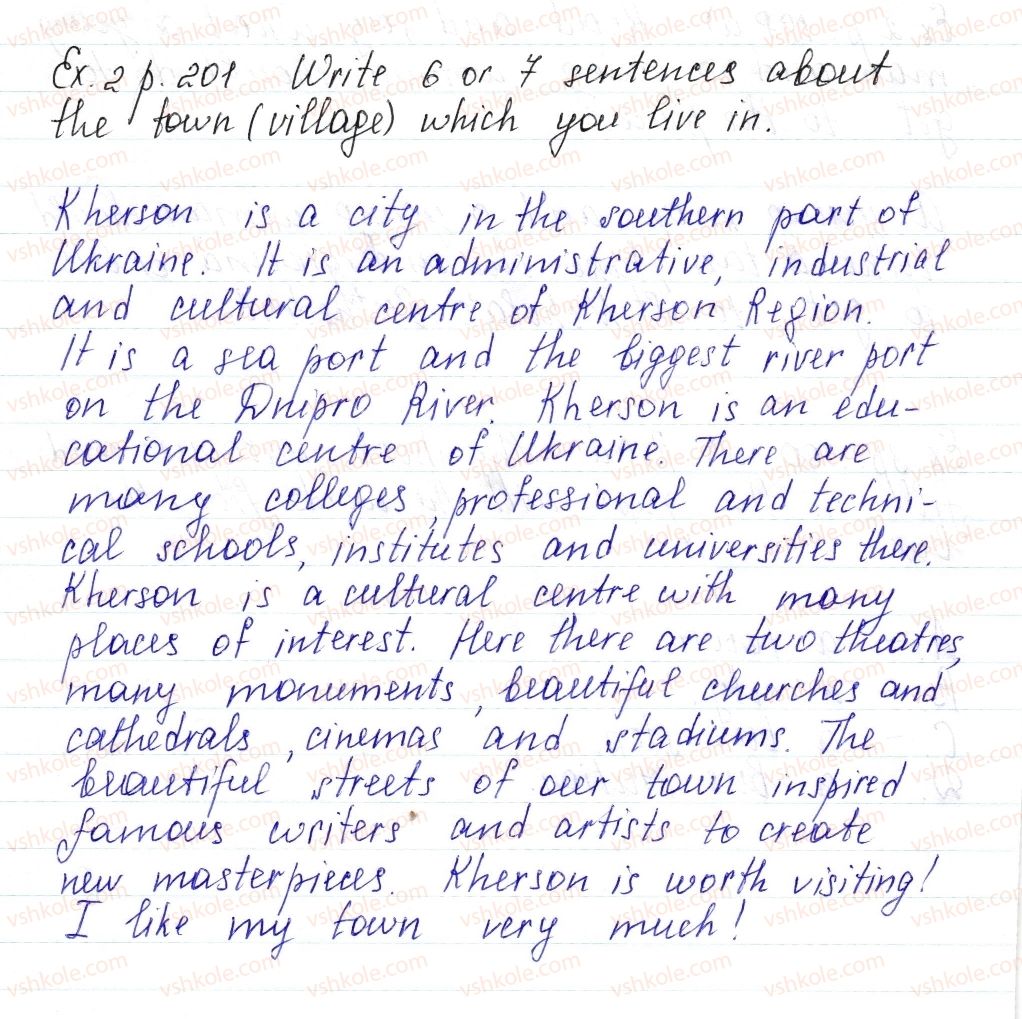 Ex. 2 p. 201 Write 6 or 7 sentences about
the town (village) which you live in.
Kherson is a city in the southern part of
Ukraine. It is an administrative, industrial
and cultural centre of Kherson Region.
It is a sea port and the biggest river port
on the Dnipro River. Kherson is an edu-
cational centre of Ukraine. There are
many colleges, professional and techni-
cal schools, institutes and universities there.
Kherson is a cultural centre with many
places of interest. Here there are two theatres,
many monuments, beautiful churches and
cathedrals, cinemas and stadiums. The
beautiful streets of our town inspired
famous writers and artists to create
new masterpieces. Kherson is worth visiting!
I like my town very much!
vshkole.com